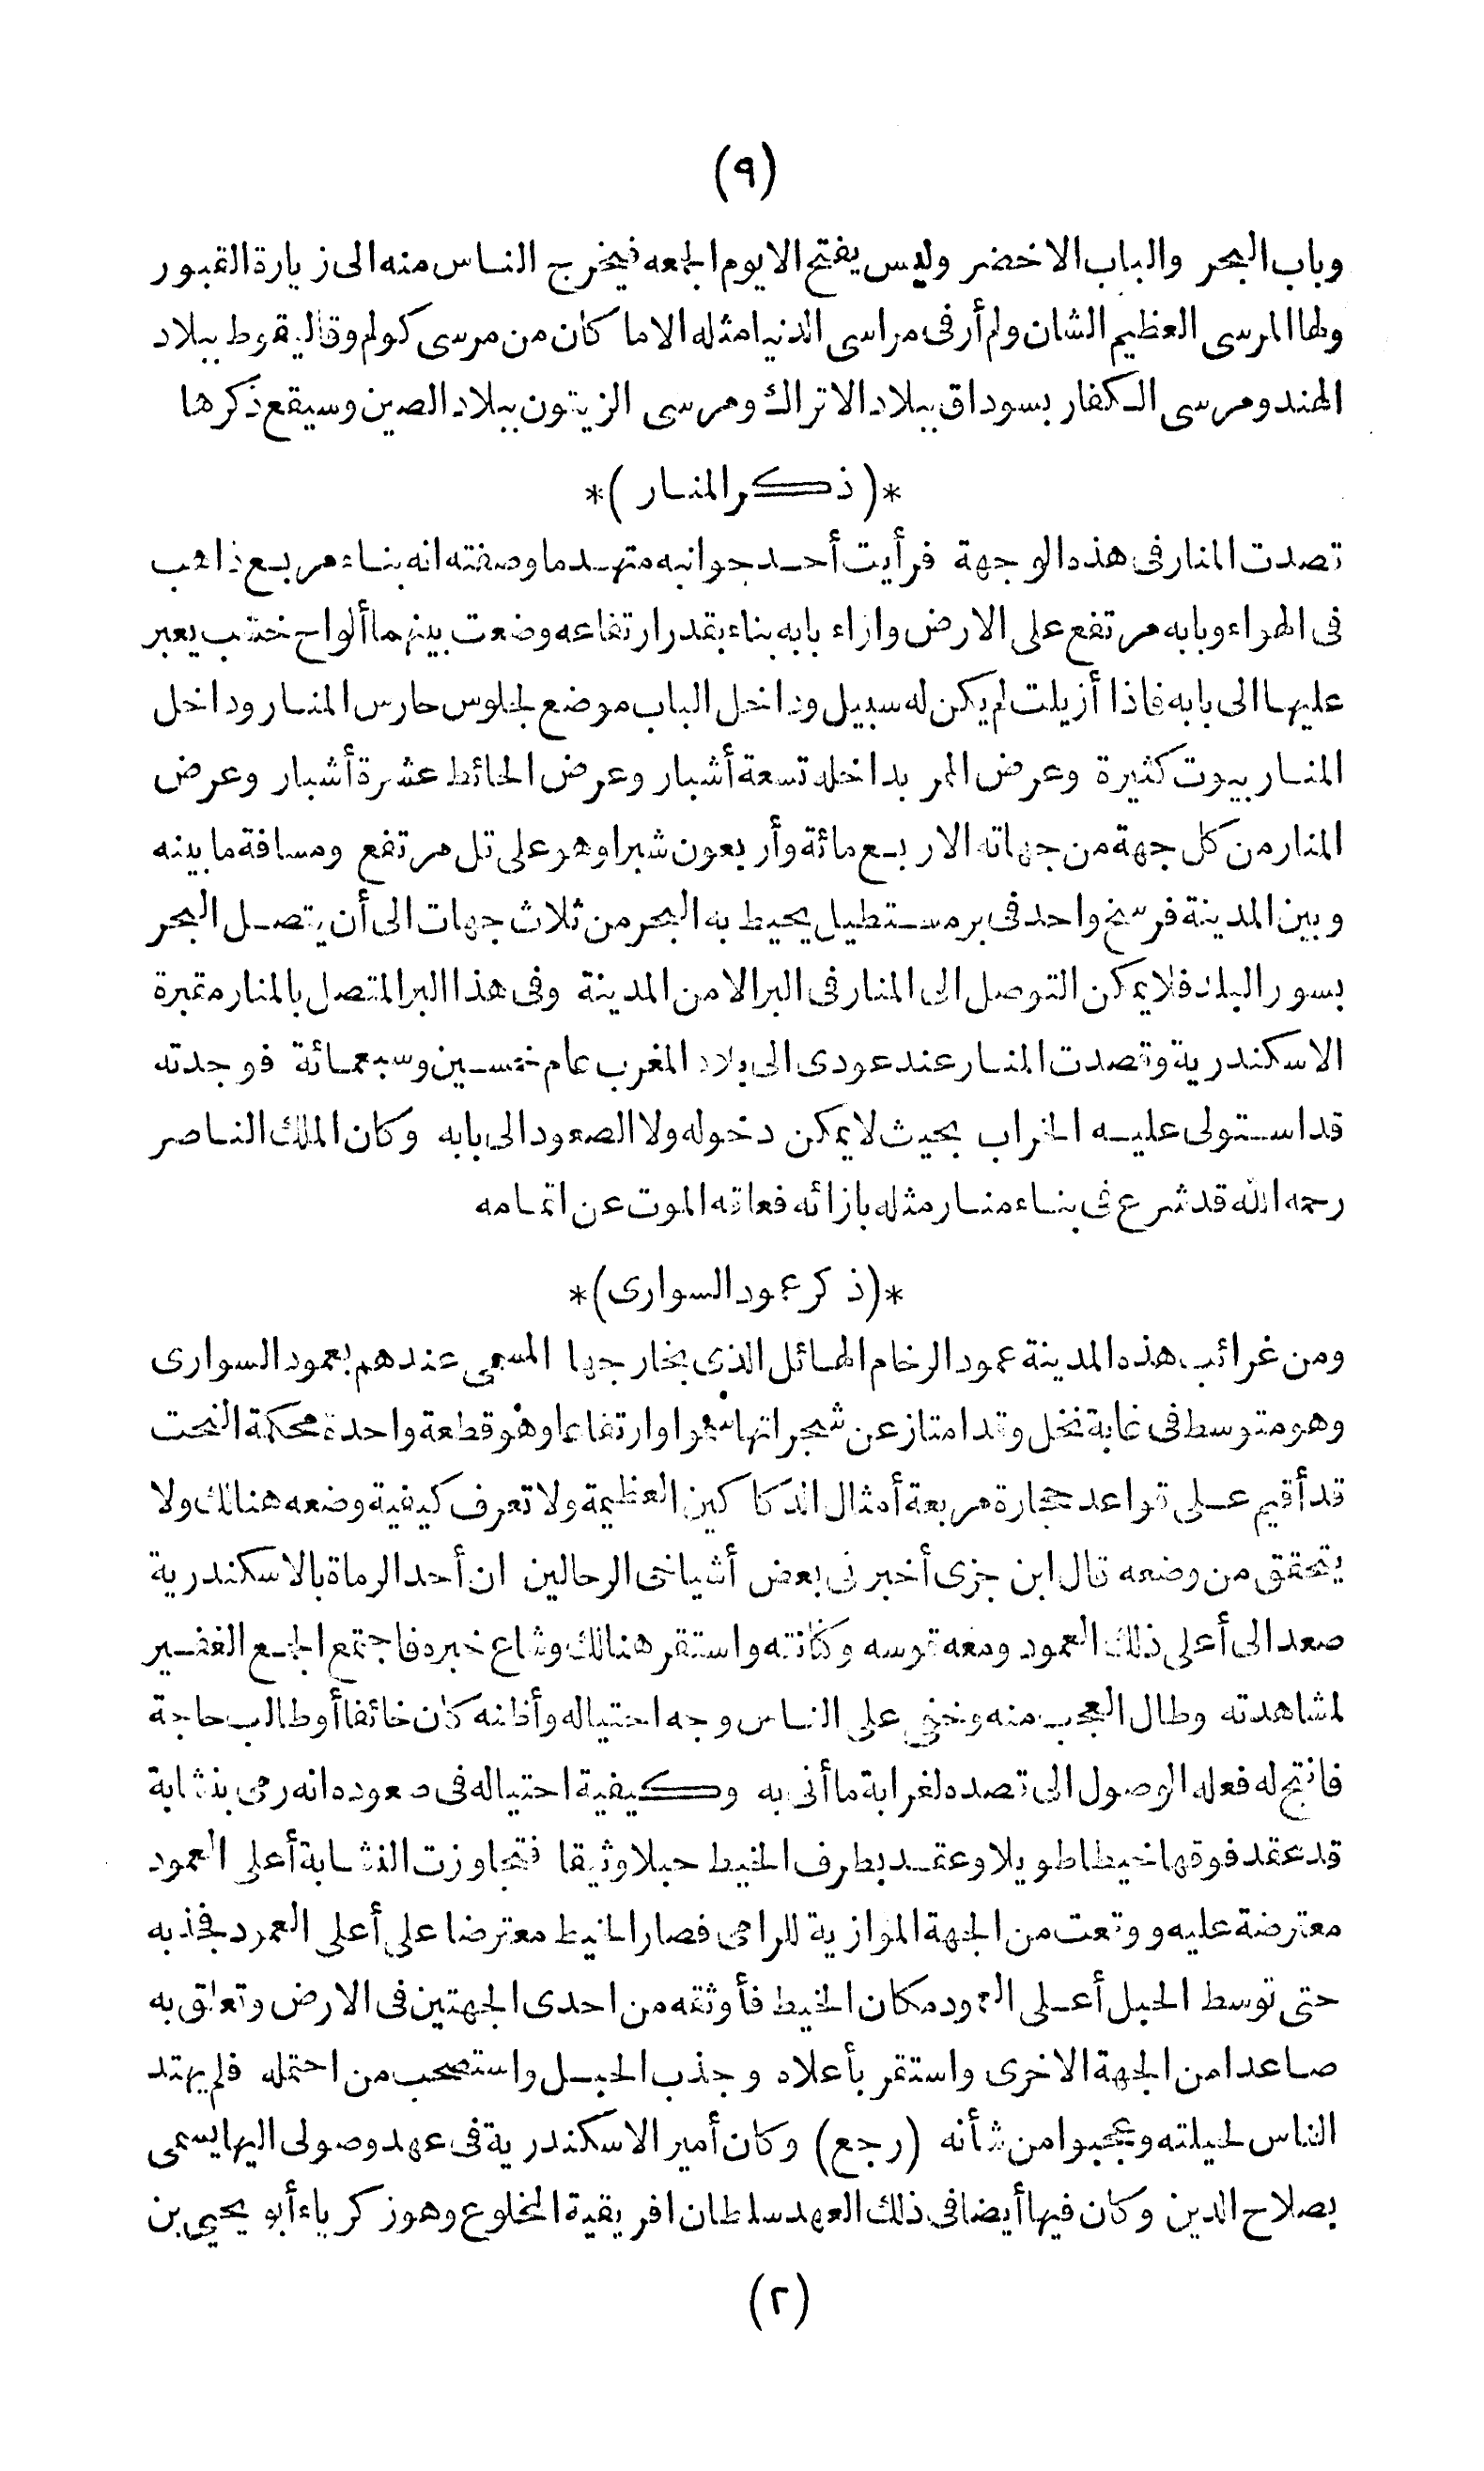 (٩)
وباب البحر والباب الاخضر وليس يفتح الا يوم الجمعه فيخرج الناس منه الى زيارة القبور
ولها المرسى العظيم الشان ولم أر فى مراسى الدنيا مثله الا ما كان من مرسى كولم وقاليقوط ببلاد
الهند ومرسى الكفار بسوداق ببلاد الاتراك ومرسى الزيتون ببلاد الصين وسيقع ذكرها
*(ذكر المنار)*
قصدت المنار فى هذه الوجهة فرأيت أحد جوانبه متهدما وصفته انه بناء مربع ذاهب
فى الهواء وبابه مرتفع على الارض وازاء بابه بناء بقدر ارتفاعه وضعت بينهما ألواح خشب يعبر
عليها الى بابه فاذا أزيلت لم يكن له سبيل وداخل الباب موضع لجلوس حارس المنار وداخل
المنار بيوت كثيرة وعرض الممر بداخله تسعة أشبار وعرض الحائط عشرة أشبار وعرض
المنار من كل جهة من جهاته الاربع مائة وأربعون شبرا وهو على تل مرتفع ومسافة ما بينه
وبين المدينة فرسخ واحد فى بر مستطيل يحيط به البحر من ثلاث جهات الى أن يتصل البحر
بسور البلد فلا يمكن التوصل الى المنار فى البر الا من المدينة وفى هذا البر المتصل بالمنار مقبرة
الاسكندرية وقصدت المنار عند عودى الى بلاد المغرب عام خمسين وسبعمائة فوجدته
قد استولى عليه الخراب بحيث لا يمكن دخوله ولا الصعود الى بابه وكان الملك الناصر
رحمه الله قد شرع فى بناء منار مثله بازائه فعاقه الموت عن اتمامه
*(ذكر عمود السوارى)*
ومن غرائب هذه المدينة عمود الرخام الهائل الذى بخارجها المسمى عندهم بعمود السوارى
وهو متوسط فى غابة نخل وقد امتاز عن شجراتها سموا وارتفاعا وهو قطعة واحدة محكمة النحت
قد أقيم على قواعد حجارة مربعة أمثال الدكاكين العظيمة ولا تعرف كيفية وضعه هنالك ولا
يتحقق من وضعه قال ابن جزى أخبرنى بعض أشياخى الرحالين ان أحد الرماة بالاسكندرية
صعد الى أعلى ذلك العمود ومعه قوسه وكنانته واستقر هنالك وشاع خبره فاجتمع الجمع الغفير
لمشاهدته وطال العجب منه وخفى على الناس وجه احتياله وأظنه كان خائفا أو طالب حاجة
فانتج له فعله الوصول الى قصده لغرابة ما أتى به وكيفية احتياله فى صعوده انه رمى بنشابة
قد عقد فوقها خيطا طويلا وعقد بطرف الخيط حبلا وثيقا فتجاوزت النشابة أعلى العمود
معترضة عليه ووقعت من الجهة الموازية للرامى فصار الخيط معترضا على أعلى العمود فجذبه
حتى توسط الحبل أعلى العمود مكان الخيط فأوثقه من احدى الجهتين فى الارض وتعلق به
صاعدا من الجهة الاخرى واستقر بأعلاه وجذب الحبل واستصحب من احتمله فلم يهتد
الناس لحيلته وعجبوا من شأنه (رجع) وكان أمير الاسكندرية فى عهد وصولى اليها يسمى
بصلاح الدين وكان فيها أيضا فى ذلك العهد سلطان افريقية المخلوع وهو زكرياء أبو يحيى بن
(٢)